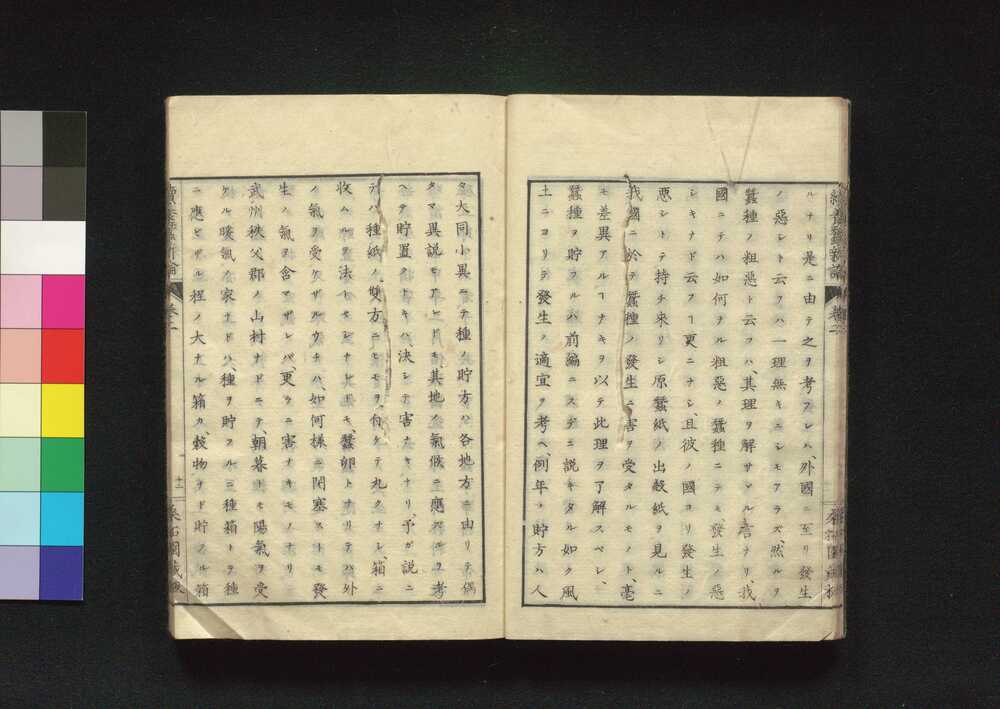 ルナリ是ニ由テ之ヲ考フレハ、外國ニ至リ發生
ノ惡シト云フハ一理無キニシモアラズ、然ルヲ
蠶種ノ粗惡ト云フハ、其理ヲ解サヾル言ナリ、我
國ニテハ如何ナル粗惡ノ蠶種ニテモ發生ノ惡
シキナド云フヿ更ニナシ、且彼ノ國ヨリ發生ノ
惡シトテ持チ來リシ原蠶紙ノ出殼紙ヲ見ルニ
我國ニ於テ蠶種ノ發生ニ害ヲ受タルモノト、毫
モ差異アルヿナキヲ以テ此理ヲ了解スベシ、
蠶種ヲ貯フルハ前編ニスデニ説キタル如ク風
土ニヨリテ發生ノ適宜ヲ考ヘ、例年ノ貯方ハ人
續養蠶新論
卷二
タ大同小異ニテ種ノ貯方ハ各地方ニ由リテ偶
タマ異説モアレドモ、其地ノ氣候ニ應ズルヲ考
ヘテ貯置
ケバ決シテ害ナキナリ、予ガ説ニ
テハ種紙ノ雙方ニヒモヲ付ケテ丸クナシ、箱ニ
收ハルヲ法トセシナレドモ、蠶卵トナリテハ外
ノ氣ヲ受ケザルウチハ、如何樣ニ閉塞ストモ發
生ノ氣ヲ含マザレバ、更ラニ害ナキモノナリ
武州秩父郡ノ山村ナドニテ、朝暮トモ陽氣ヲ受
ケル暖氣ノ家ナドハ、種ヲ貯フルニ種箱トテ種
ニ應ヒザル程ノ大ナル箱カ、穀物ナド貯フル箱
卷二
十一